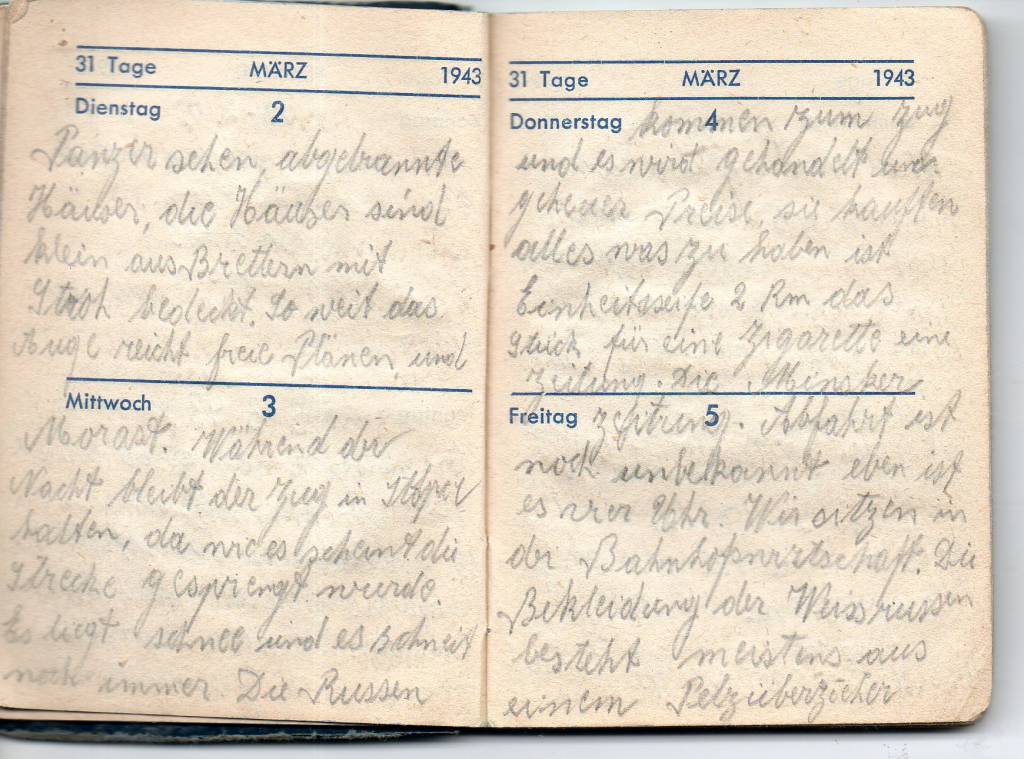 31 Tage MÄRZ 1943
Dienstag 2
Panzer sehen, abgebrannte
Häuser, die Häuser sind
klein aus Brettern mit
Stroh bedeckt. So weit das
Auge reicht freie Plänen und
Mittwoch 3
Morast. Während der
Nacht bleibt der Zug in
halten, da wie es scheint die
Strecke gesprengt wurde.
Es liegt schnee und es schneit
noch immer. Die Russen
31 Tage MÄRZ 1943
Donnerstag 4 kommen zum Zug
und es wird gehandelt un-
geheuer Preise, sie kauften
alles was zu haben ist
Einheitsseife 2 Rm das
Stück für eine Zigarette eine
Zeitung. Die Minsker
Freitag 5 Zeitung. Abfahrt ist
noch unbekannt eben ist
es vier Uhr. Wir sitzen in
der Bahnhofswirtschaft. Die
Bekleidung der Weissrussen
besteht meistens aus
einem Pelzüberzieher